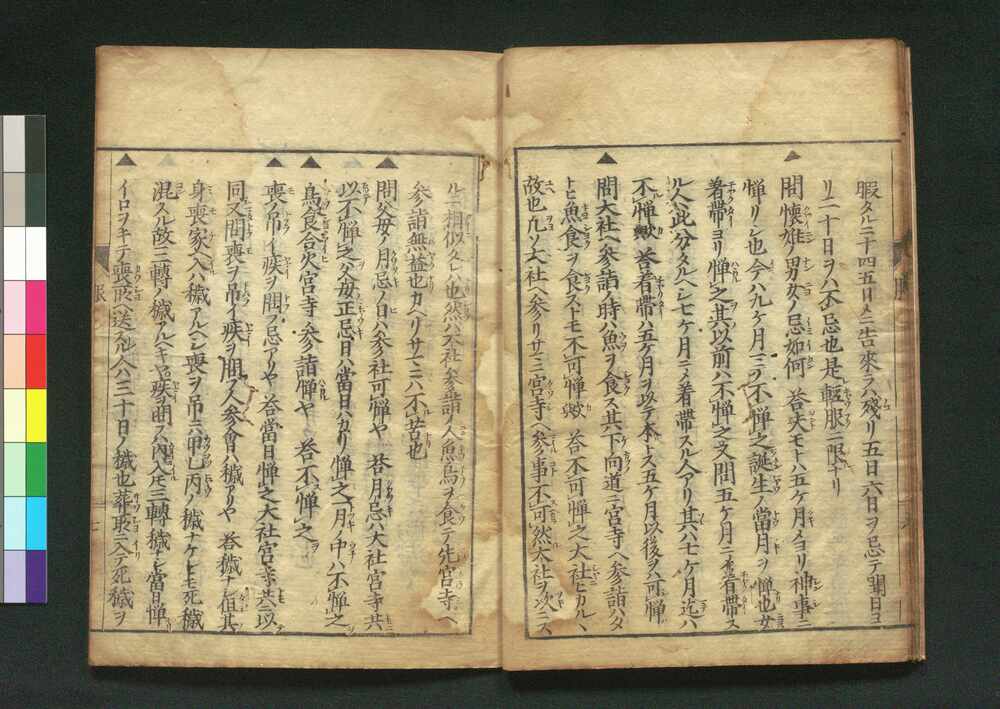 暇タル二十四五日メニ告來ラハ殘リ五日六日ヲ忌テ闕日ヨ
リ二十日ヲハ不忌也是輕服ニ限ナリ
問懐妊男女ノ忌如何 答夫モトハ五ケ月メヨリ神事ニ
憚リシ也今ハ九ケ月ニテ不憚之誕生ノ當月ヲ憚也女
着帶ヨリ憚之其以前ハ不憚之又問五ケ月ニ不着帶ス
ル人此分タルヘシ七ケ月ニメ着帶スル人アリ其ハ七ケ月迄ハ
不憚歟 答着帶ハ五ケ月ヲ以テ本トス五ケ月以後ヲハ可憚
問大社ヘ參詣ノ時ハ魚ヲ食ス其下向道ニ宮寺ヘ參詣ハタ
トヒ魚食ヲ食ストモ不可憚歟 答不可憚之大社ヒカル丶
故也凡ソ大社ヘ參リサマニ宮寺ヘ參事不可然大社ヲ次ニス
ルニ相似タレハ也然ハ大社參詣ノ人魚鳥ヲ食テ先宮寺ヘ
參詣無益也カヘリサマニハ不苦也
問父母ノ月忌ノ日ハ參社可憚ヤ 答月忌ハ大社宮寺共
以不憚之父母正忌日ハ當日ハカリ憚之月ノ中ハ不憚之
鳥食合火宮寺ノ參詣憚ヤ 答不憚之
喪ヲ吊イ疾ヲ問フ忌アリヤ 答當日憚之大社宮寺共ニ以
同又問喪ヲ吊イ疾ヲ問フ人參會ハ穢アリヤ 答穢ナシ但其
身喪家ヘ入ハ穢アルヘシ喪ヲ吊ニ甲乙丙ノ穢ナケレトモ死穢
混スル故ニ三轉ノ穢アルヘキヤ疾ヲ問フハ内ヘ入トモ三轉ノ穢ナシ當日憚
イロヲキテ喪所ニ送ル人ハ三十日ノ穢也葬所ニ入テ死穢ヲ